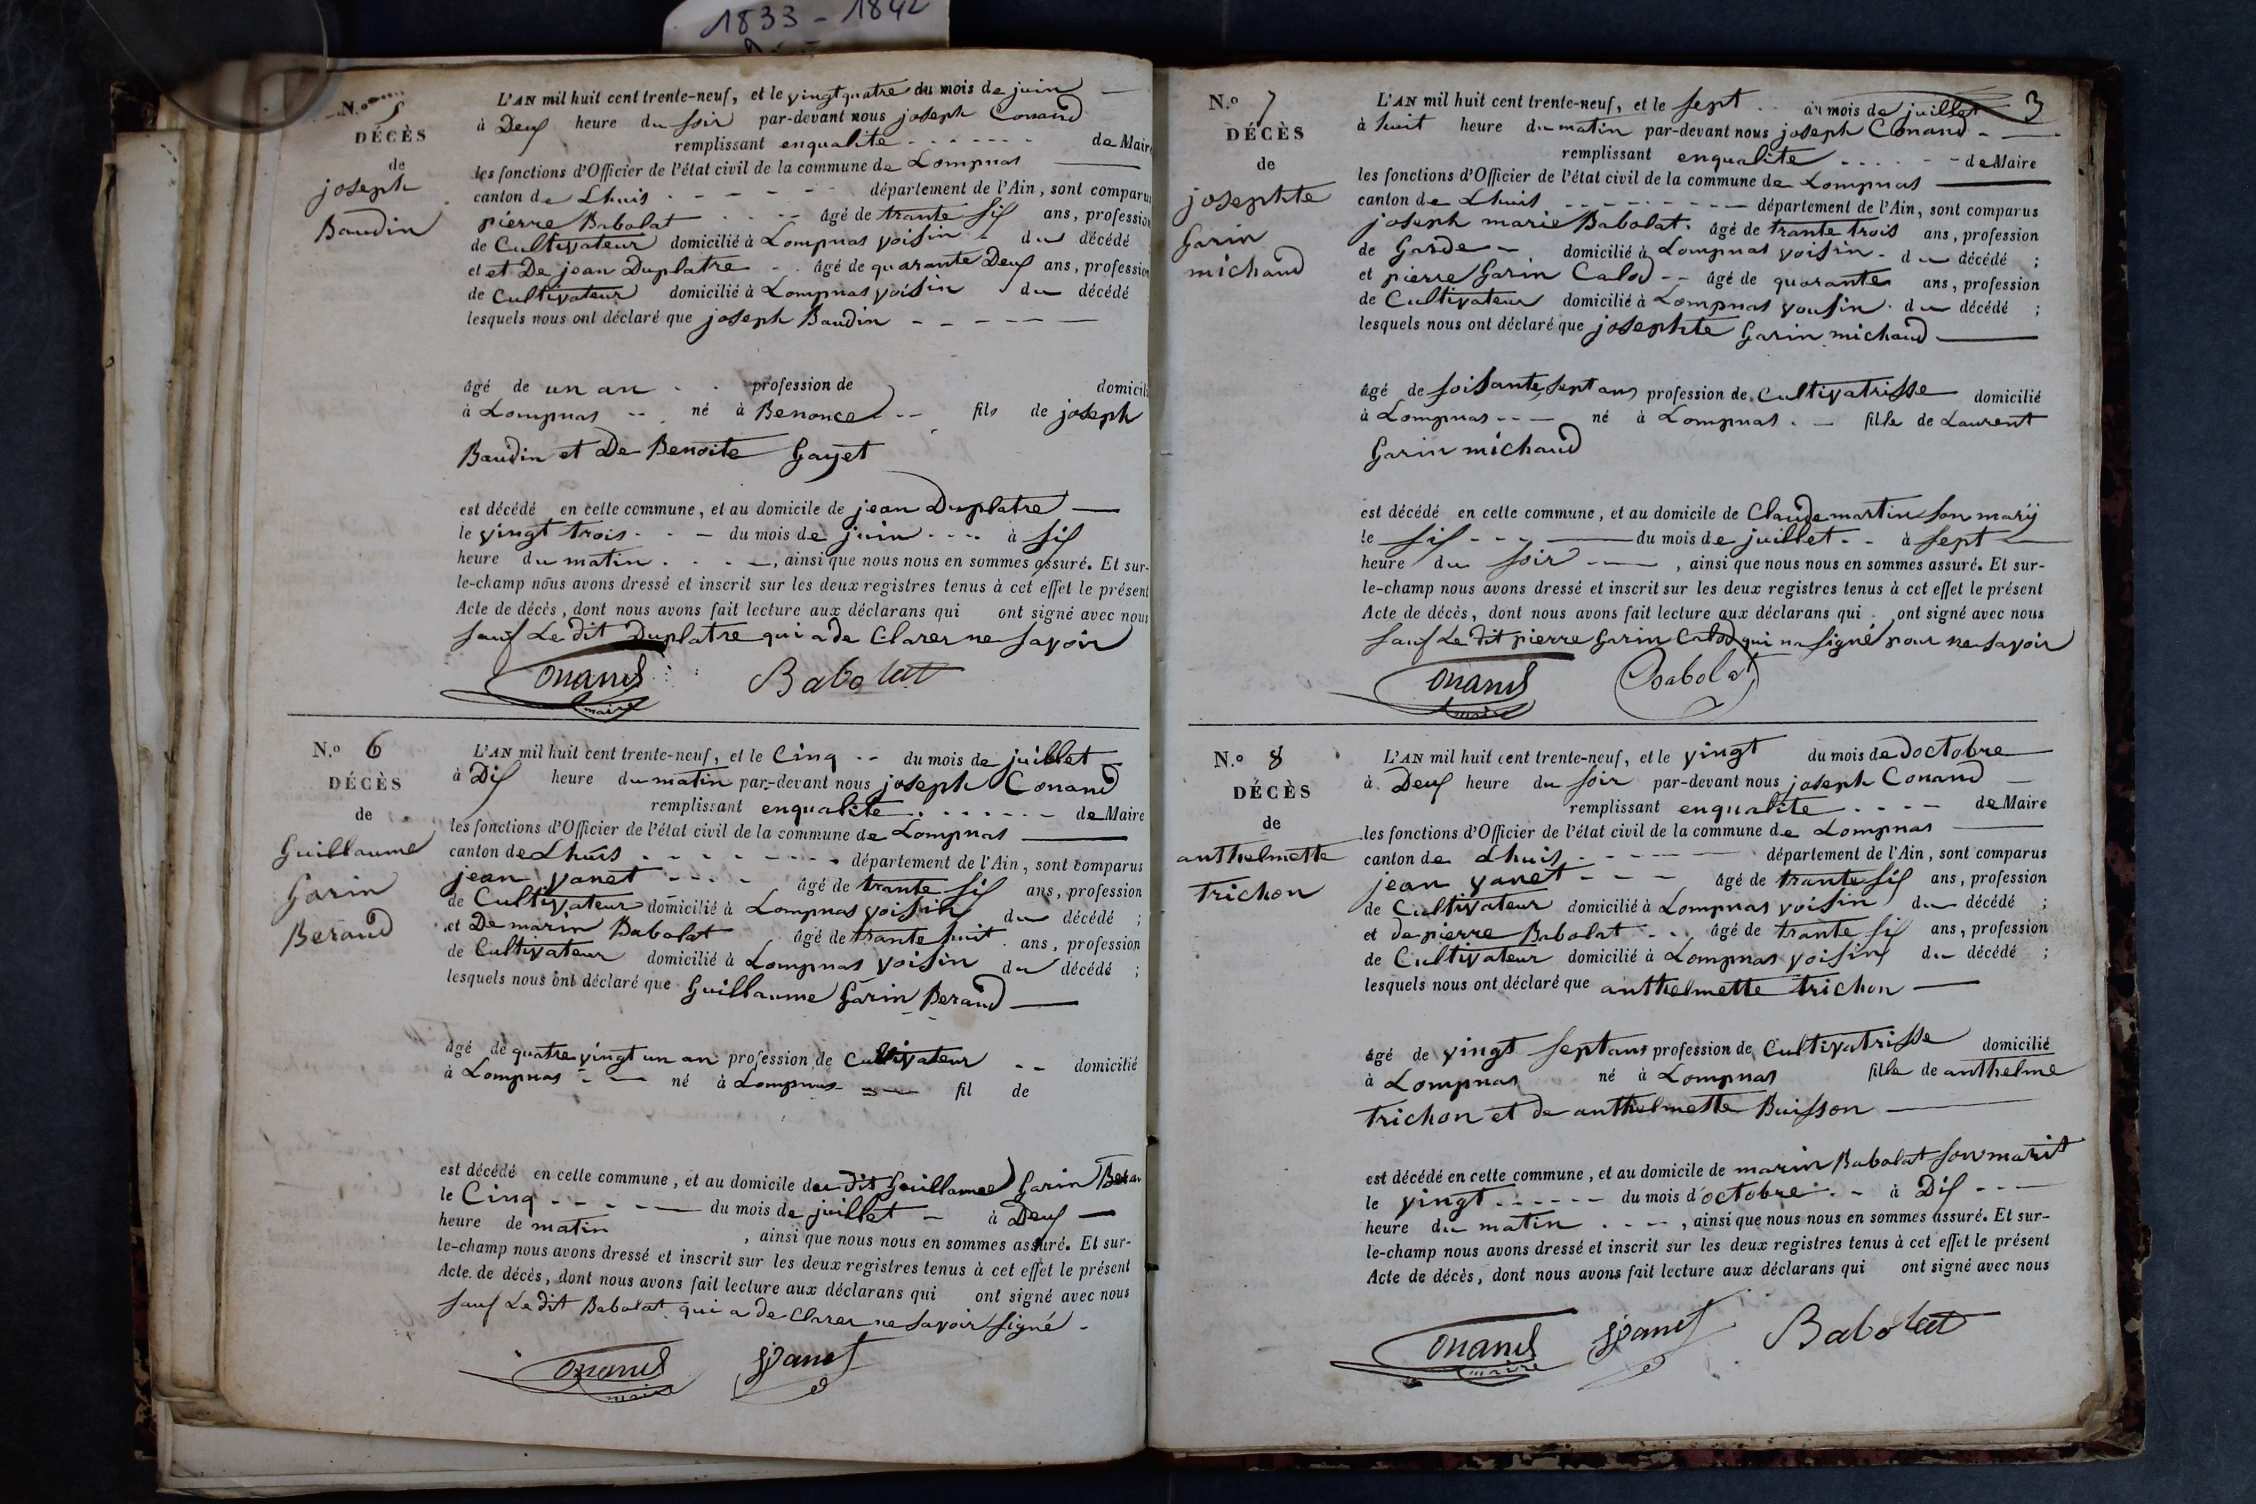 1833 - 1842
N.o 5
DÉCÈS
de
joseph
Baudin
L'AN mil huit cent trente-neuf, et le vingt quatre du mois de juin
à Deux heure du soir par-devant nous joseph Conand
remplissant enqualite de Maire
les fonctions d'Officier de l'état civil de la commune de Lompnas
canton de Lhuis département de l'Ain, sont comparus
pierre Babolat âgé de trante six ans, profession
de Cultivateur domicilié à Lompnas voisin du décédé
et et De jean Duplatre âgé de quarante Deux ans, profession
de Cultivateur domicilié à Lompnas voisin du décédé
lesquels nous ont déclaré que joseph Baudin
âgé de un an profession de domicilié
à Lompnas né à Benonce fils de joseph
Baudin et De Benoite Gayet
est décédé en cette commune, et au domicile de jean Duplatre
le vingt trois du mois de juin à six
heure du matin, ainsi que nous nous en sommes assuré. Et sur-
le-champ nous avons dressé et inscrit sur les deux registres tenus à cet effet le présent
Acte de décès, dont nous avons fait lecture aux déclarans qui ont signé avec nous
sauf Le dit Duplatre qui a de Clarer ne savoir
Conand Babolat
maire
N.o 6
DÉCÈS
de
Guillaume
Garin
Beraud
L'AN mil huit cent trente-neuf, et le Cinq du mois de juillet
à Dix heure du matin par-devant nous joseph Conand
remplissant enqualite de Maire
les fonctions d'Officier de l'état civil de la commune de Lompnas
canton de Lhuis département de l'Ain, sont comparus
jean yanet âgé de trante six ans, profession
de Cultivateur domicilié à Lompnas voisin du décédé ;
et De marin Babolat âgé de trante huit ans, profession
de Cultivateur domicilié à Lompnas voisin du décédé ;
lesquels nous ont déclaré que Guillaume Garin Beraud
âgé de quatre vingt un an profession de Cultivateur domicilié
à Lompnas né à Lompnas fil de
est décédé en cette commune, et au domicile du dit Guillaume Garin Berau
le Cinq du mois de juillet à Deux
heure de matin, ainsi que nous nous en sommes assuré. Et sur-
le-champ nous avons dressé et inscrit sur les deux registres tenus à cet effet le présent
Acte de décès, dont nous avons fait lecture aux déclarans qui ont signé avec nous
sauf Le dit Babolat qui a de Clarer ne savoir signé -
Conand yanet
maire
3
N.o 7
DÉCÈS
de
josephte
Garin
michaud
L'AN mil huit cent trente-neuf, et le sept du mois de juillet
à huit heure du matin par-devant nous joseph Conand
remplissant enqualite de Maire
les fonctions d'Officier de l'état civil de la commune de Lompnas
canton de Lhuis département de l'Ain, sont comparus
joseph marie Babolat âgé de trante trois ans, profession
de Garde domicilié à Lompnas voisin du décédé ;
et pierre Garin Calod âgé de quarante ans, profession
de Cultivateur domicilié à Lompnas vousin du décédé ;
lesquels nous ont déclaré que josephte Garin michaud
âgé de soisante sept ans profession de Cultivatrisse domicilié
à Lompnas né à Lompnas fille de Laurent
Garin michaud
est décédé en cette commune, et au domicile de Claude martin son marÿ
le six du mois de juillet à sept
heure du soir, ainsi que nous nous en sommes assuré. Et sur-
le-champ nous avons dressé et inscrit sur les deux registres tenus à cet effet le présent
Acte de décès, dont nous avons fait lecture aux déclarans qui ont signé avec nous
sauf Le dit pierre Garin Calod qui na signé pour ne savoir
Conand Babolat
maire
N.o 8
DÉCÈS
de
anthelmette
trichon
L'AN mil huit cent trente-neuf, et le vingt du mois de doctobre
à Deux heure du soir par-devant nous joseph Conand
remplissant enqualite de Maire
les fonctions d'Officier de l'état civil de la commune de Lompnas
canton de Lhuis département de l'Ain, sont comparus
jean yanet âgé de trante six ans, profession
de Cultivateur domicilié à Lompnas voisin du décédé ;
et de pierre Babolat âgé de trante six ans, profession
de Cultivateur domicilié à Lompnas voisin du décédé ;
lesquels nous ont déclaré que anthelmette trichon
âgé de vingt sept ans profession de Cultivatrisse domicilié
à Lompnas né à Lompnas fille de anthelme
trichon et de anthelmette Buisson
est décédé en cette commune, et au domicile de marin Babolat son marit
le vingt du mois d'octobre à Dix
heure du matin, ainsi que nous nous en sommes assuré. Et sur-
le-champ nous avons dressé et inscrit sur les deux registres tenus à cet effet le présent
Acte de décès, dont nous avons fait lecture aux déclarans qui ont signé avec nous
Conand yanet Babolat
maire